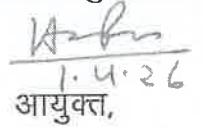 1.4.26
आयुक्त,